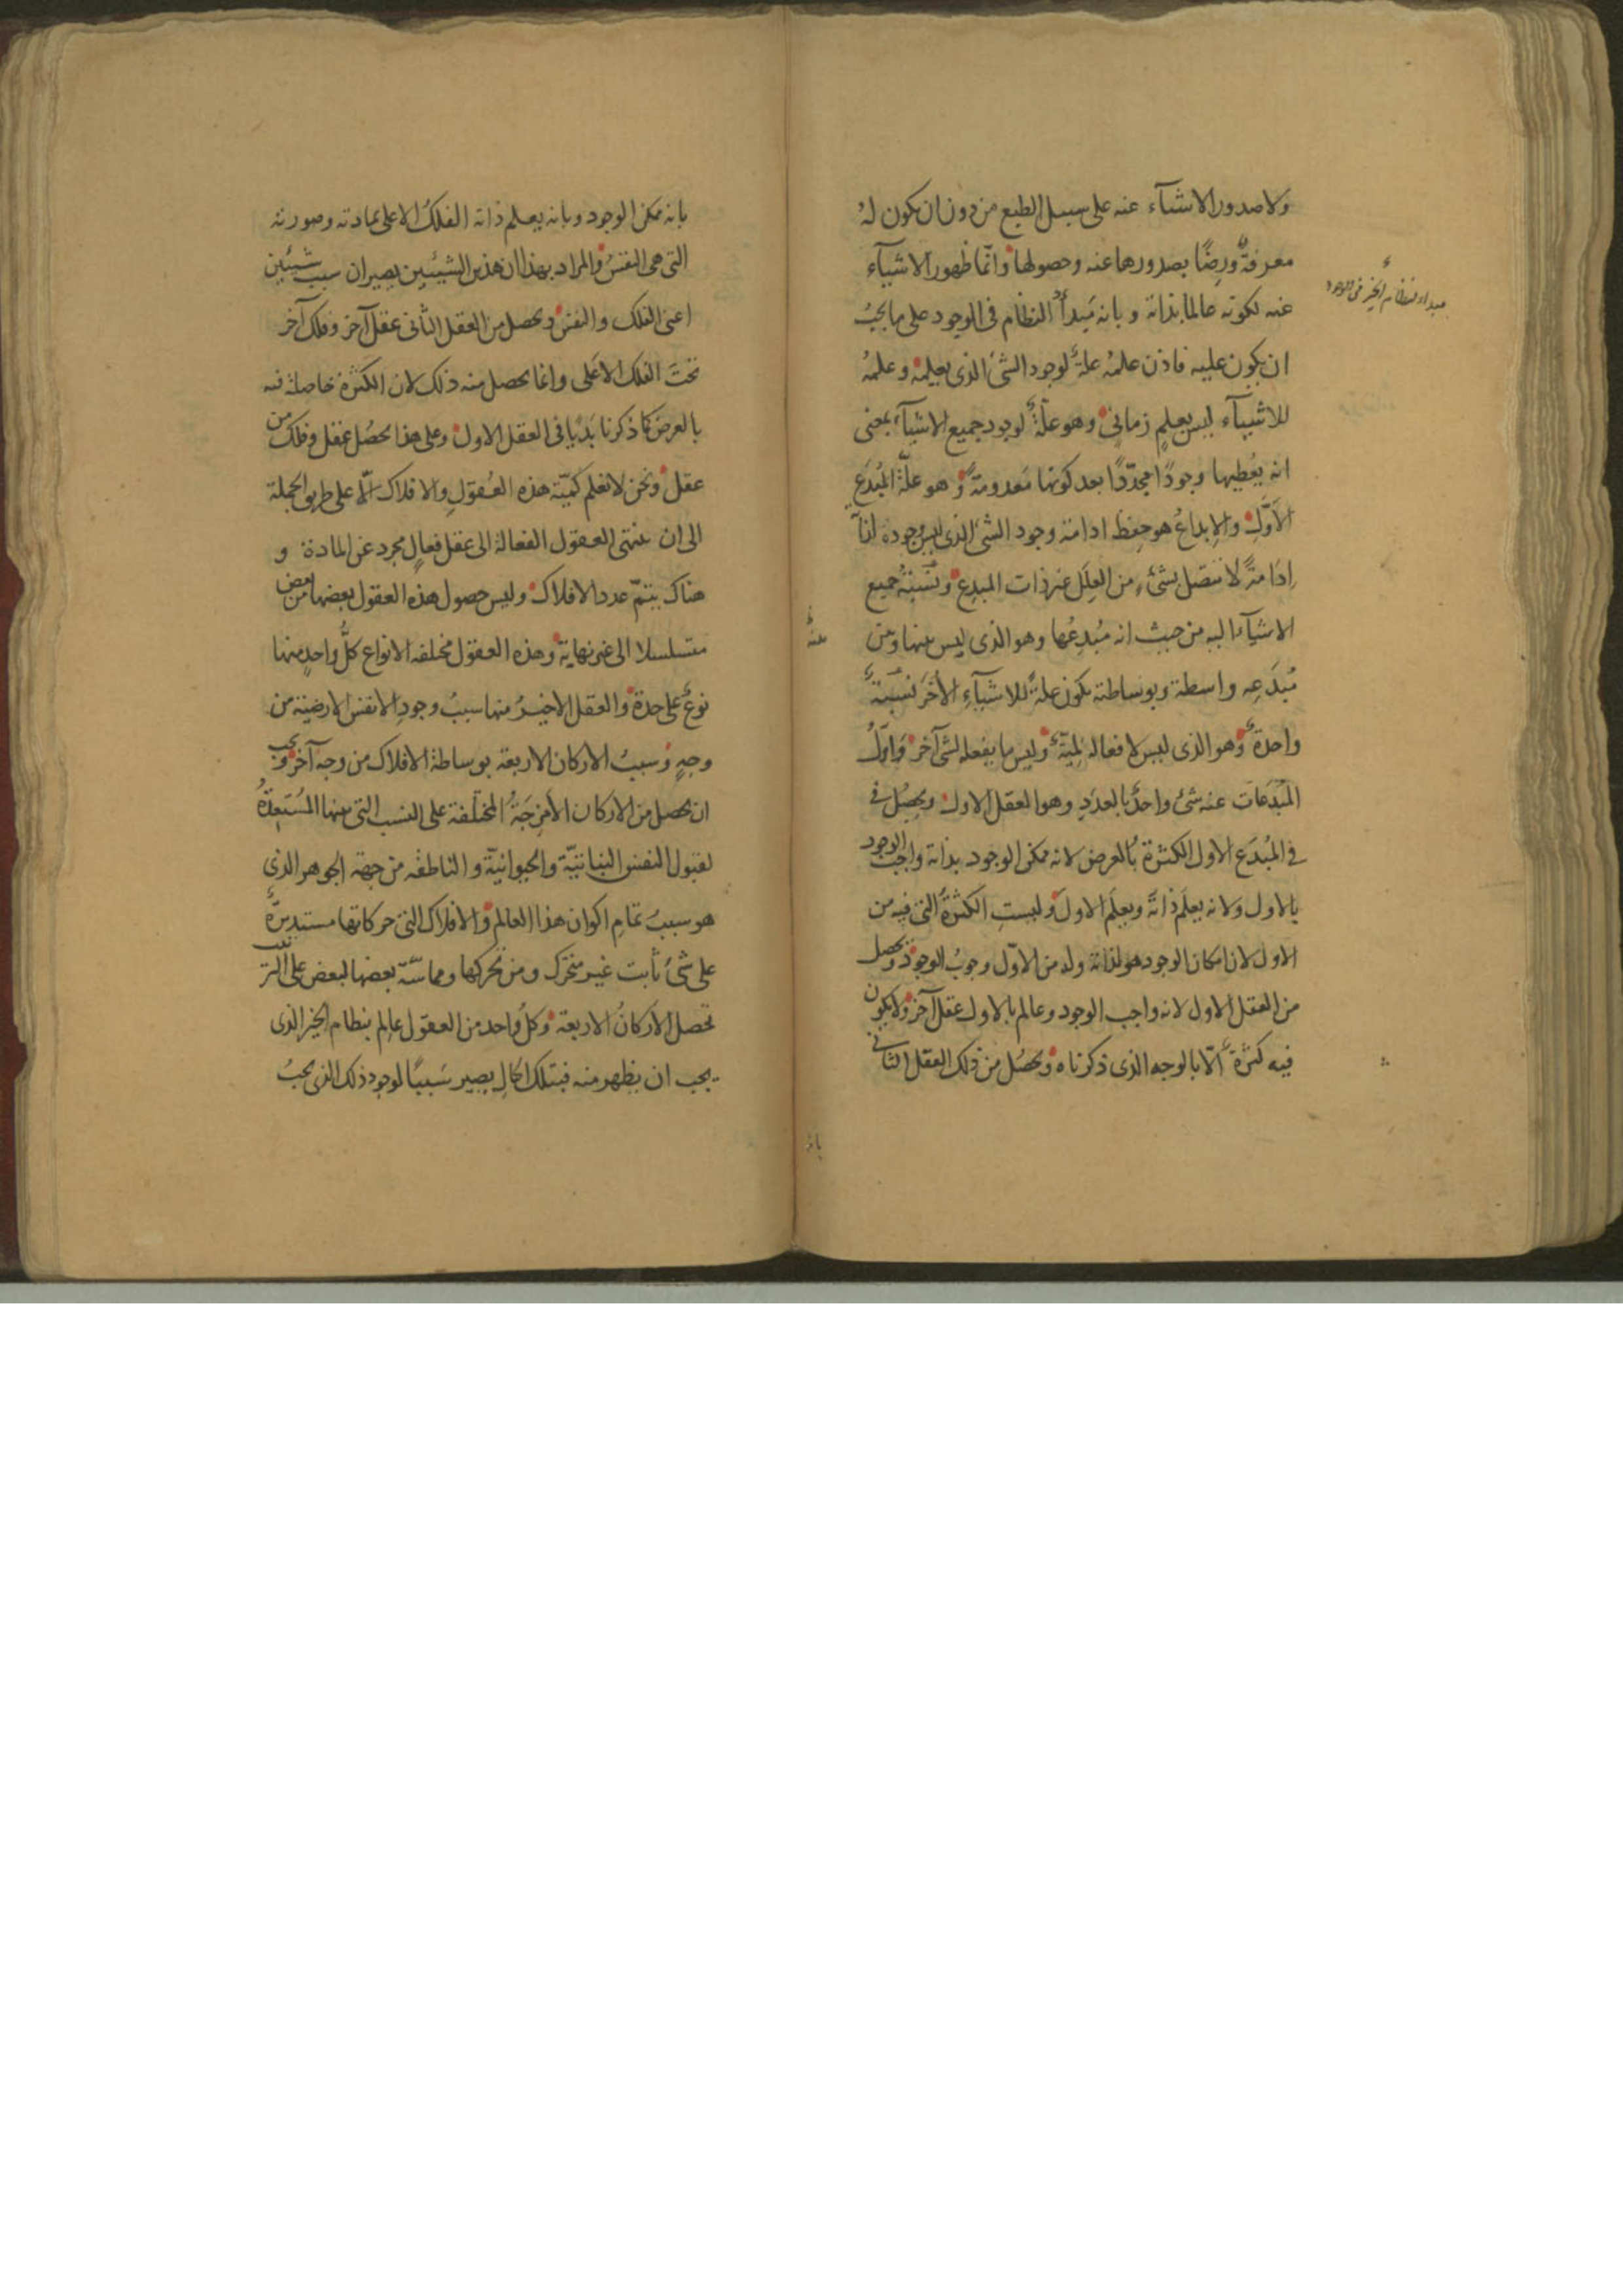 ولا صدور الاشيآء عنه على سبيل الطبع من دون ان يكون لهُ
معرفةٌ ورِضًا بصدورها عنه وحصولها وانّما ظهور الاشيآء
عنه لكونه عالما بذاته و بانه مَبدأ النظام فى الوجود على ما يجبُ
ان يكون عليه فاذن علمهُ علةٌ لوجود الشئ الذى يعلمه وعلمهُ
للاشيآء ليس بعلمٍ زمانى وهو علّةٌ لوجود جميع الاشيآء بمعنى
انه يُعْطيها وجودًا مجدّدًا بعد كونها مَعدومةً وهو علّة المُبدَع
الاوّل والابداعُ هو حِفظ ادامة وجود الشئ الذى ليس وجوده لذاته
اِدَامةً لا تتصل بشئ من العِلَل غير ذات المبدِع ونسبةُ جميع
الاشيآء اليه من حيث انه مُبدِعُها وهو الذى ليس بينها وبين
مُبدَعِه واسطة وبوساطته يكون علةً للاشيآء الاُخَر نسْبةٌ
واحدةٌ وهو الذى ليس لافعاله لِمِيّةٌ وليس ما يفعله لشئ آخر وَاوّلُ
المُبدَعات عنه شئ واحدٌ بالعددِ وهو العقل الاول ويحصُل فى
فى المُبدَع الاول الكثرة بالعرض لانه ممكن الوجود بذاته واجب الوجود
بالاول ولانه يعلَم ذاتَهُ ويعلَم الاول وليستِ الكثرةُ التى فيه من
الاول لان امكان الوجود هو لذاته وله من الاوّل وجوبُ الوجود ويحصل
من العقل الاول لانه واجب الوجود وعالم بالاول عقل آخر ولا يكون
فيه كثرةٌ الّا بالوجه الذى ذكرناه ويحصُل من ذلك العقل الثانى
مبدأ لنظام الخير فى الوجود
عنهُ
بانه
بانه ممكن الوجود وبانه يعلم ذاته الفلكُ الاعلى بمادته وصورته
التى هى النفسُ والمراد بهذا ان هذين الشيئين يصيران سبب شيئين
اعنى الفلك والنفس ويحصل من العقل الثانى عقل آخر وفلك آخر
تحتَ الفلك الاعلى وانما يحصل منه ذلك لان الكثرة حاصلة فيه
بالعرض كما ذكرنا بَدِيّا فى العقل الاول وعلى هذا يحصُل عقل وفلك من
عقل ونحن لا نعلم كميّة هذه العُقول والافلاك الّا على طريق الجملة
الى ان تنتهى العقول الفعالة الى عقل فعالٍ مجرد عن المادة و
هناك يتمّ عدد الافلاك وليس حصول هذه العقول بعضها من بعض
متسلسلا الى غير نهاية وهذه العقول مختلفة الانواع كلُّ واحدٍ منها
نوعٌ على حدة والعقل الاخيرُ منها سببُ وجودِ الانفس الارضية من
وجهٍ وسببُ الاركان الاربعة بوساطة الافلاك من وجه آخر ويجب
ان يحصل من الاركان الاَمْزِجَةُ المختلفة على النسب التى بينها المُستعِدَّةُ
لقبول النفس النباتيّة والحيوانيّة والناطقه من جهة الجوهر الذى
هو سببُ تمامِ اكوان هذا العالم والافلاك التى حركاتها مستديرةٌ
على شئ ثابت غير متحرّك ومن تحركها ومماسّة بعضها لبعض على الترتيب
تحصل الاركانُ الاربعة وكلُّ واحد من العقول عالِم بنظام الخير الذى
يجب ان يظهر منه فبتلك الحالِ يصير سَببًا لوجود ذلك الذى يجبُ